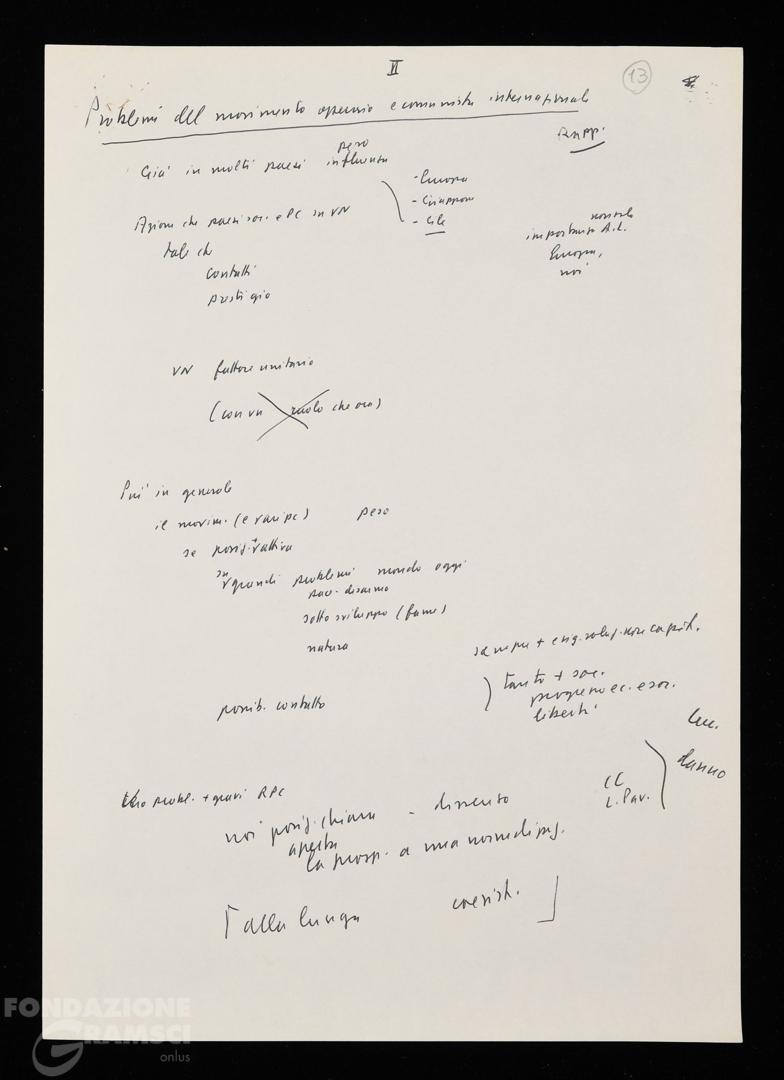 VI
13
Problemi del movimento operaio e comunista internazionale
Rapp.
peso
Già in molti paesi influenza
- Europa
- Giappone
- Cile
Azione che paesi soc. e PC su VN
tale che
contatti
prestigio
importanza A.L.
Europa,
noi
VN fattore unitario
(con un ruolo che ora)
Più in generale
il movim. (e vari pc) peso
se posiz. + attiva
su
grandi problemi mondo oggi
pace - disarmo
sotto sviluppo (fame)
natura
sempre + esig. soluz. non capit.
tanto + soc.
progresso ec. e soc.
libertà
possib. contatto
probl. + gravi RPC
noi posiz. chiara - dissenso
aperta
la prosp. a una normalizz.
CC
L. Pav.
danno
[alla lunga coesist.]
FONDAZIONE
GRAMSCI
onlus